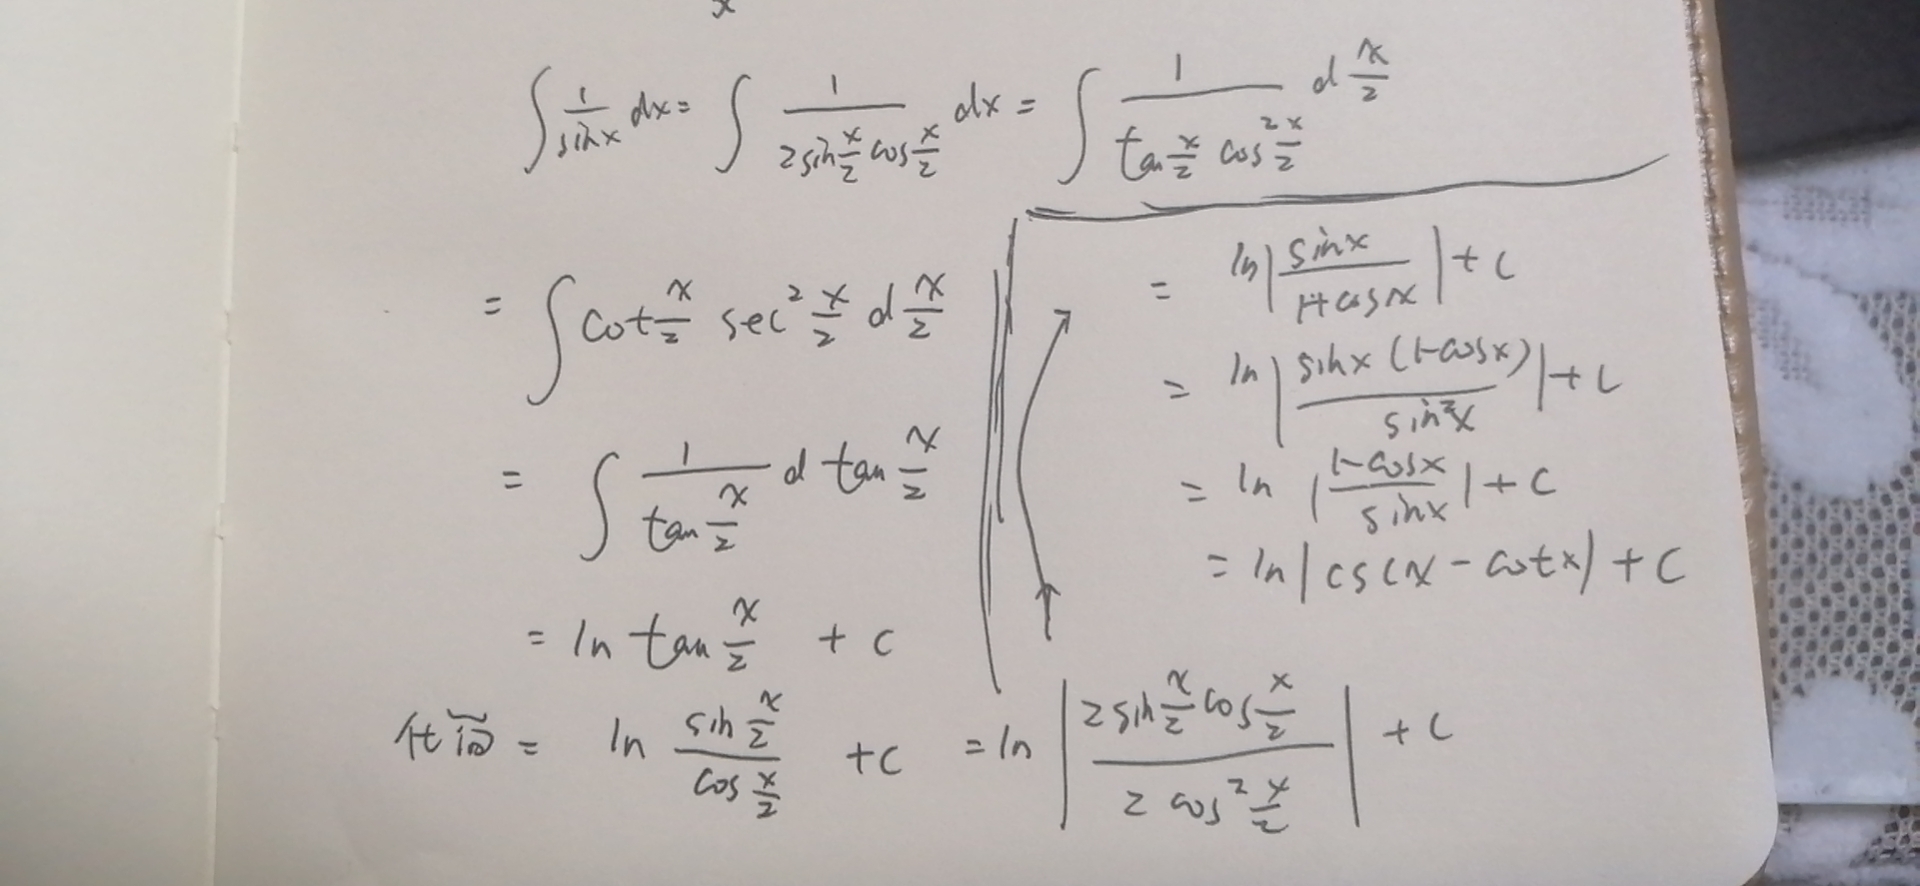 x
∫ 1/sinx dx = ∫ 1/(2sin x/2 cos x/2) dx = ∫ 1/(tan x/2 cos² x/2) d x/2
= ∫ cot x/2 sec² x/2 d x/2
= ∫ 1/(tan x/2) d tan x/2
= ln tan x/2 + c
= ln (sin x/2)/(cos x/2) + c = ln |(2sin x/2 cos x/2)/(2cos² x/2)| + c
= ln |sinx/(1+cosx)| + c
= ln |sinx(1-cosx)/sin²x| + c
= ln |(1-cosx)/sinx| + c
= ln |cscx - cotx| + c